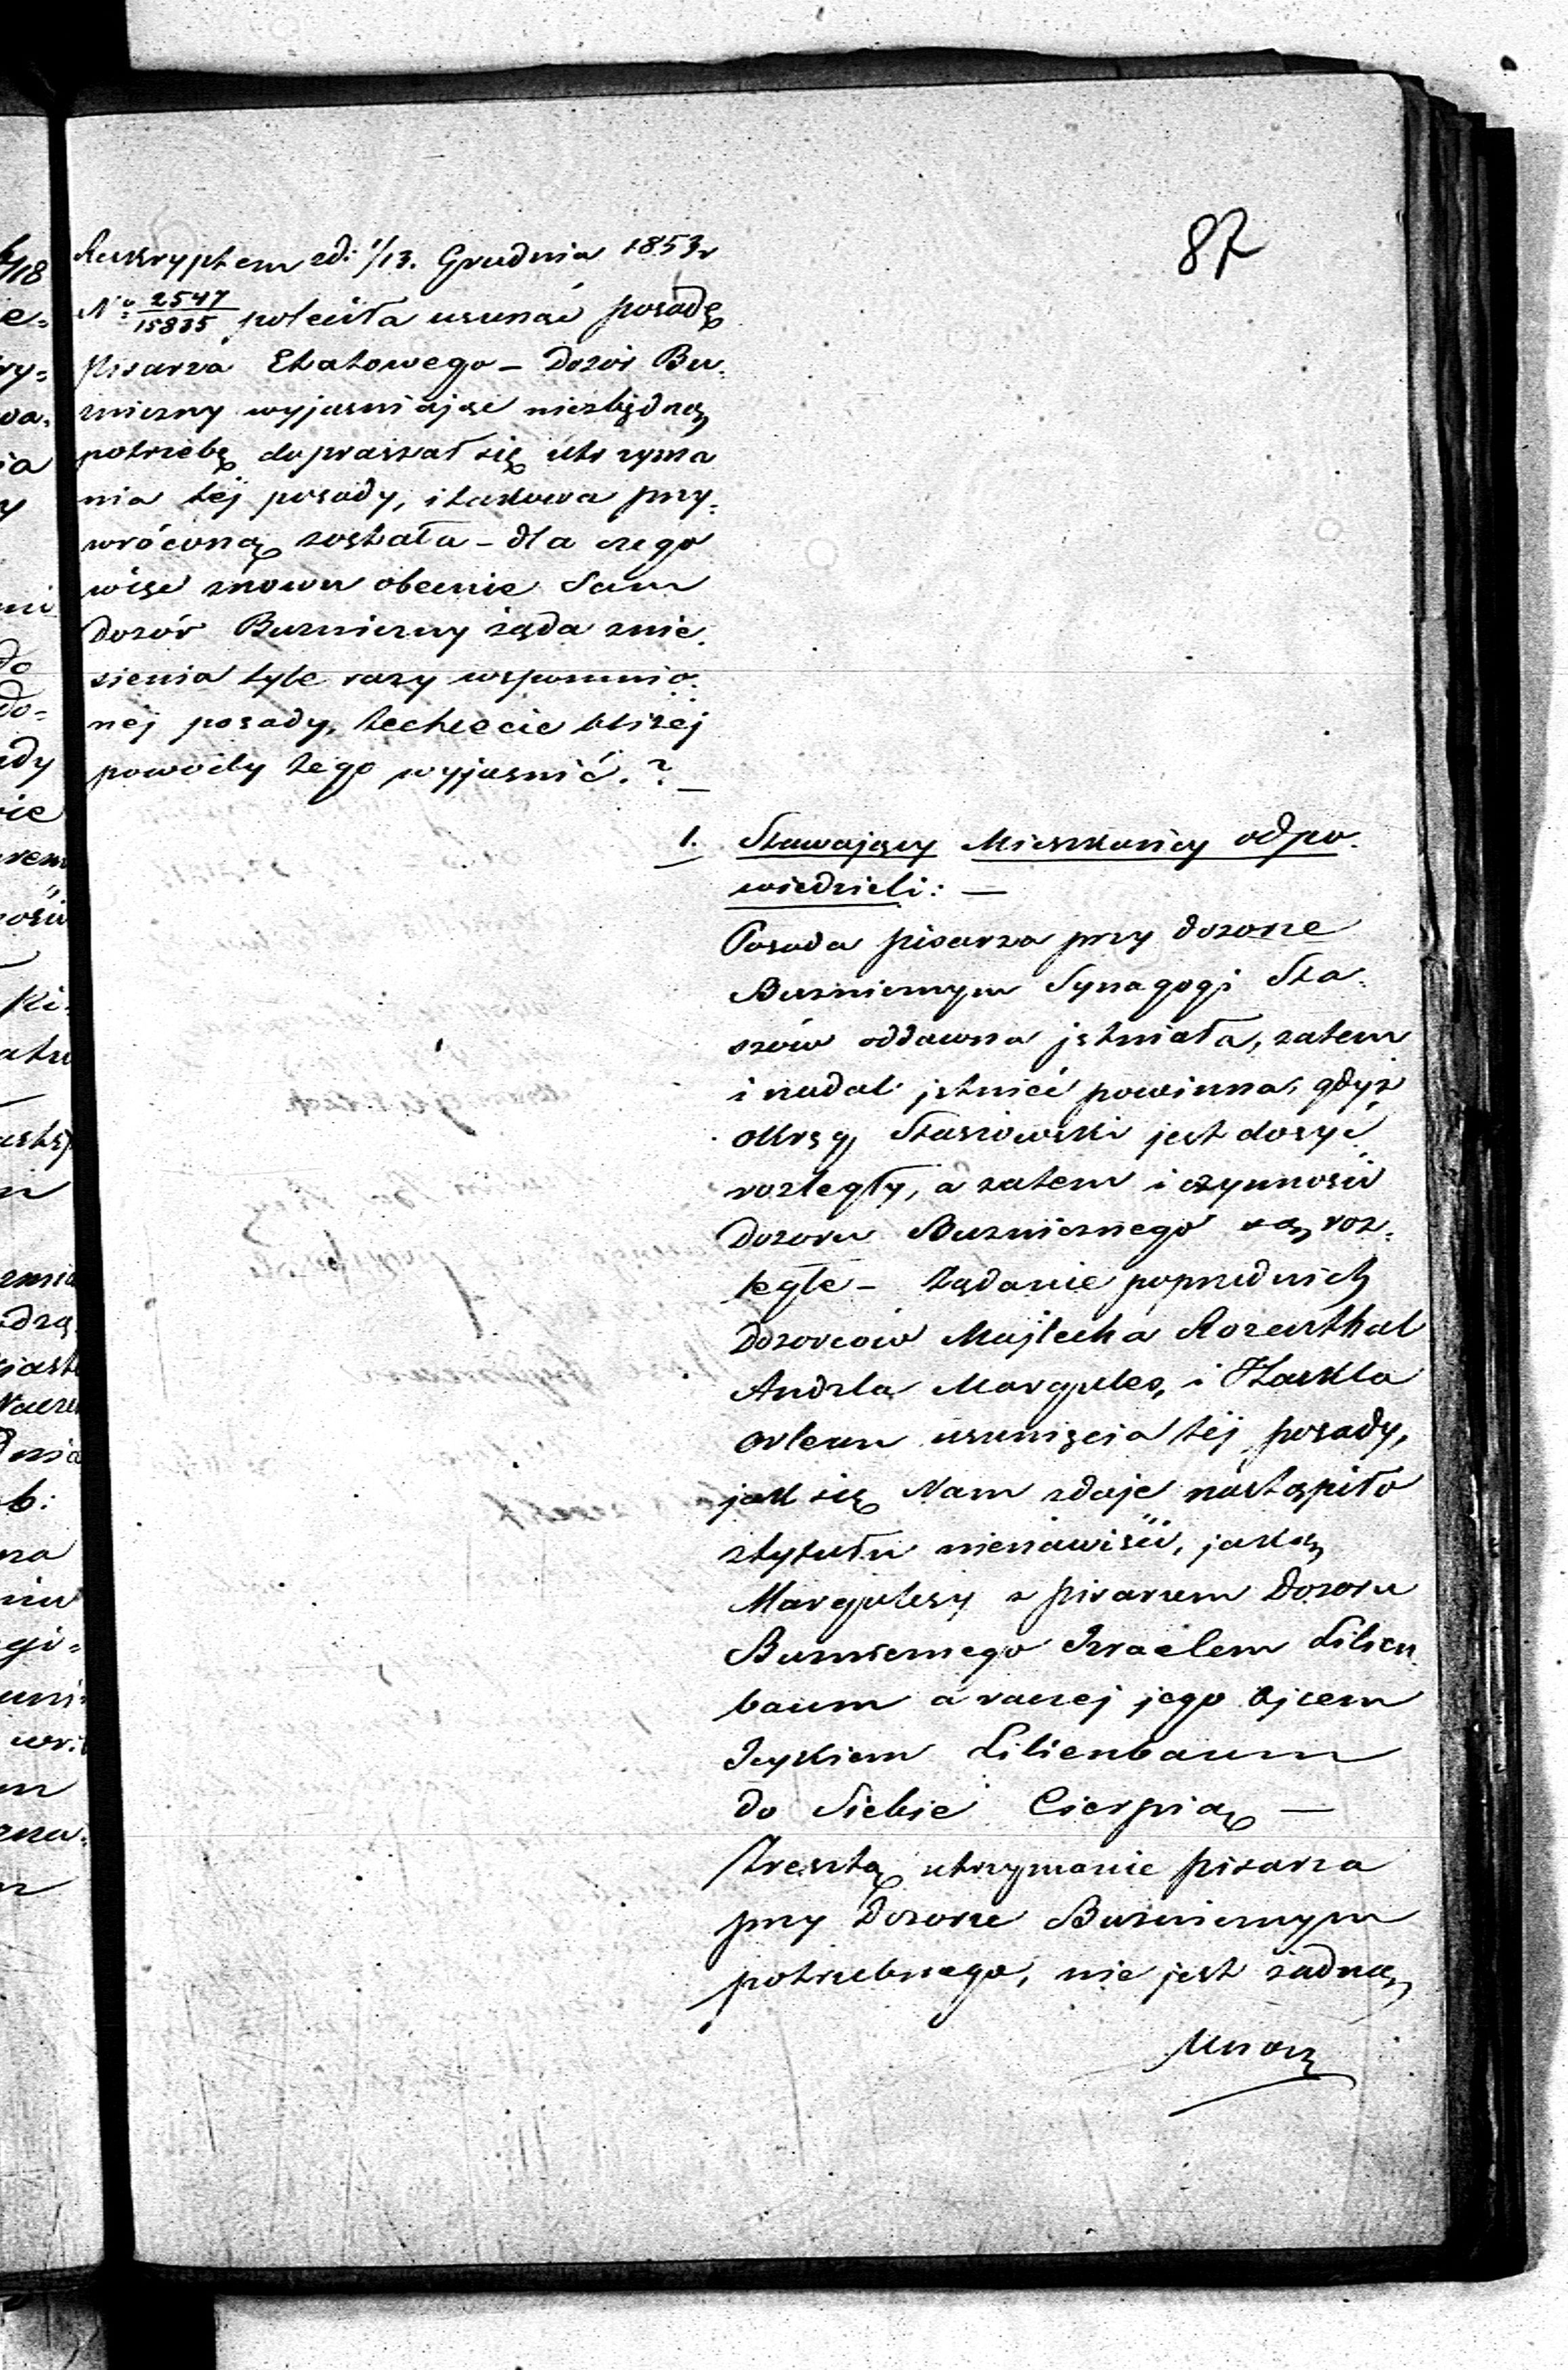 87
Reskryptem zd: 1/13. Grudnia 1853r
No: 2547/15835 poleciła usunąć posadę
Pisarza Etatowego – Dozór Bu-
żniczny wyjaśniając niezbędną
potrzebę dopraszał się utrzyma
nia téj posady, i takowa przy-
wróconą została – dla czego
więc znowu obecnie Sam
Dozór Bużniczny żąda znie-
sienia tyle razy wspomnio-
néj posady, zechcecie bliżéj
powody tego wyjaśnić. ? –
1. Stawający Mieszkańcy odpo-
wiedzieli: —
Posada pisarza przy dozorze
Bużnicznym Synagogi Sta-
szów oddawna jstniała, zatem
i nadal jstnieć powinna, gdyż
okręg Staszowski jest dosyć
rozległy, a zatem i czynności
Dozoru Bużnicznego są roz-
ległe – Żądanie poprzednich
Dozorców Majlecha Rozenthal
Andzla Margules, i Haskla
Orlean usunięcia téj posady,
jak się Nam zdaje nastąpiło
ztytułu nienawiści, jaką
Margulesy z pisarzem Dozoru
Bużnicznego Izraelem Lilien
baum a raczéj jego Ojcem
Icykiem Lilienbaum
do Siebie Cierpią —
Zresztą utrzymanie pisarza
przy Dozorze Bużnicznym
potrzebnego, nie jest żadną